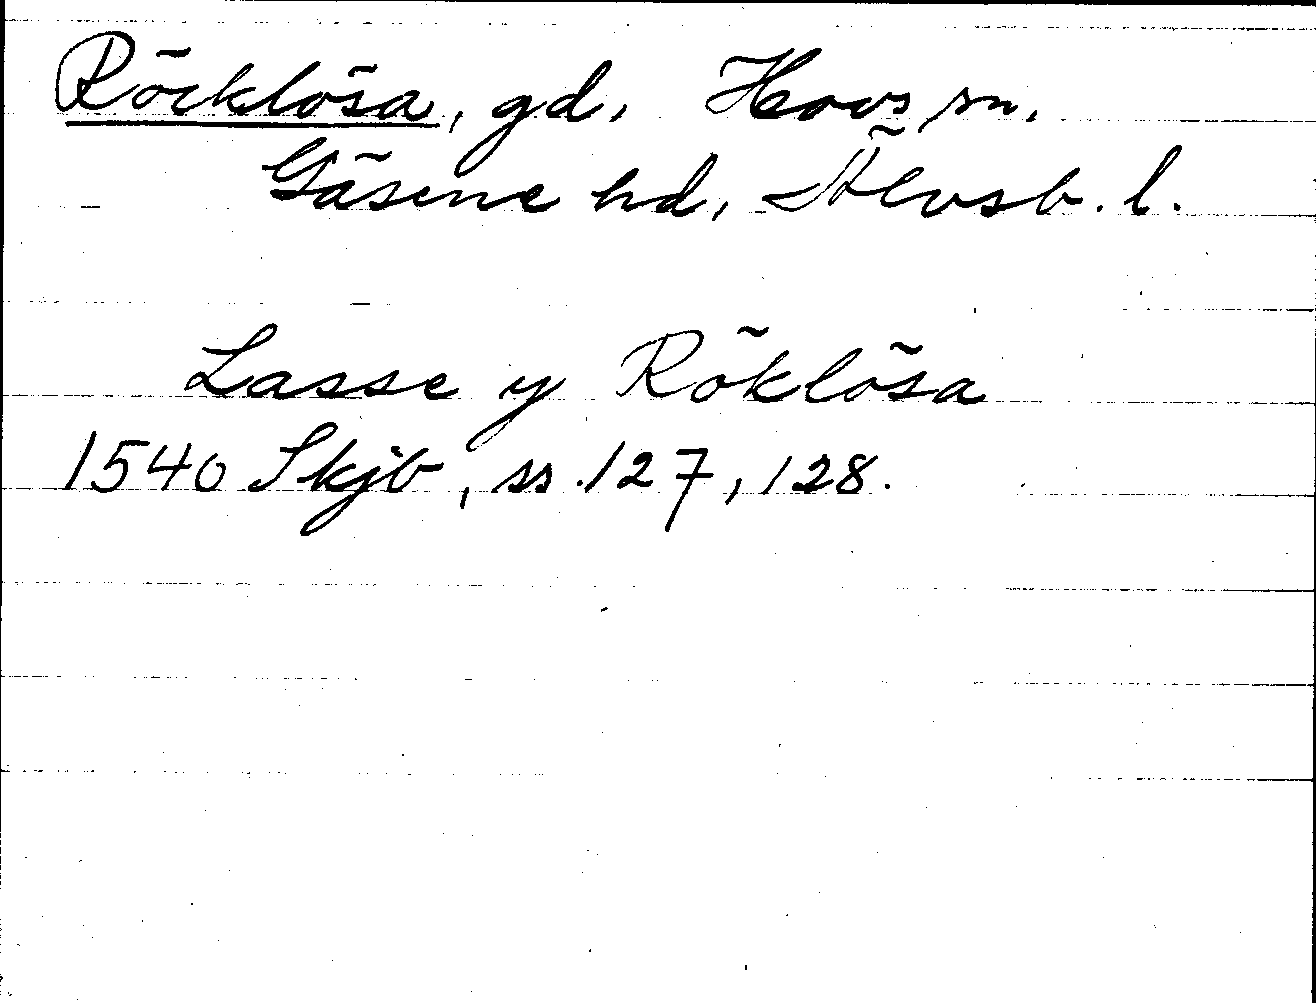 Röcklösa, gd, Hovs sn,
Gäsene hd, Älvsb. l.
Lasse y Röklösa
1540 Skjb, ss. 127, 128.